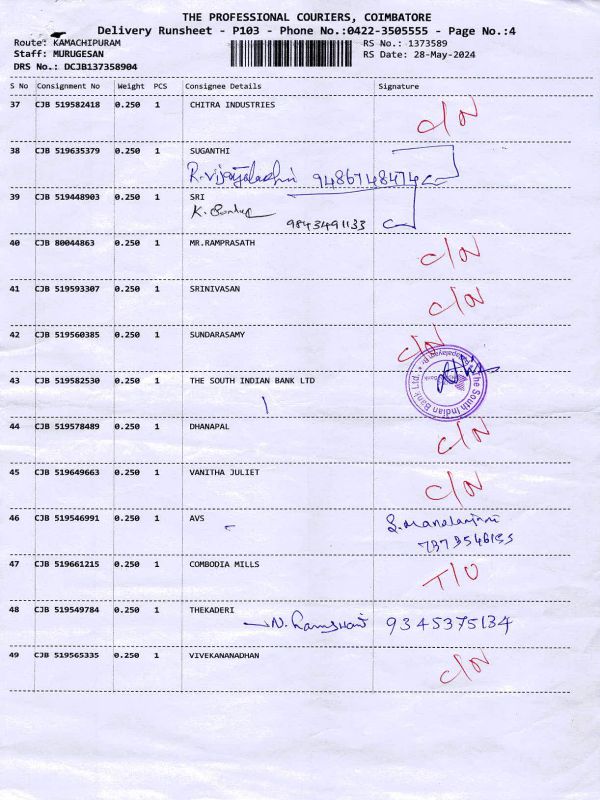 THE PROFESSIONAL COURIERS, COIMBATORE
Delivery Runsheet - P103 - Phone No.:0422-3505555 - Page No.:4
Route: KAMACHIPURAM RS No.: 1373589
Staff: MURUGESAN RS Date: 28-May-2024
DRS No.: DCJB137358904
S No Consignment No Weight PCS Consignee Details Signature
37 CJB 519582418 0.250 1 CHITRA INDUSTRIES C/N
38 CJB 519635379 0.250 1 SUGANTHI
R.Vijayalakshmi 9486748474
39 CJB 519448903 0.250 1 SRI
9843491133
40 CJB 80044863 0.250 1 MR.RAMPRASATH C/N
41 CJB 519593307 0.250 1 SRINIVASAN C/N
42 CJB 519560385 0.250 1 SUNDARASAMY C/N
43 CJB 519582530 0.250 1 THE SOUTH INDIAN BANK LTD The South Indian Bank Ltd.
44 CJB 519578489 0.250 1 DHANAPAL C/N
45 CJB 519649663 0.250 1 VANITHA JULIET C/N
46 CJB 519546991 0.250 1 AVS
47 CJB 519661215 0.250 1 COMBODIA MILLS T/U
48 CJB 519549784 0.250 1 THEKADERI
9345375134
49 CJB 519565335 0.250 1 VIVEKANANADHAN C/N